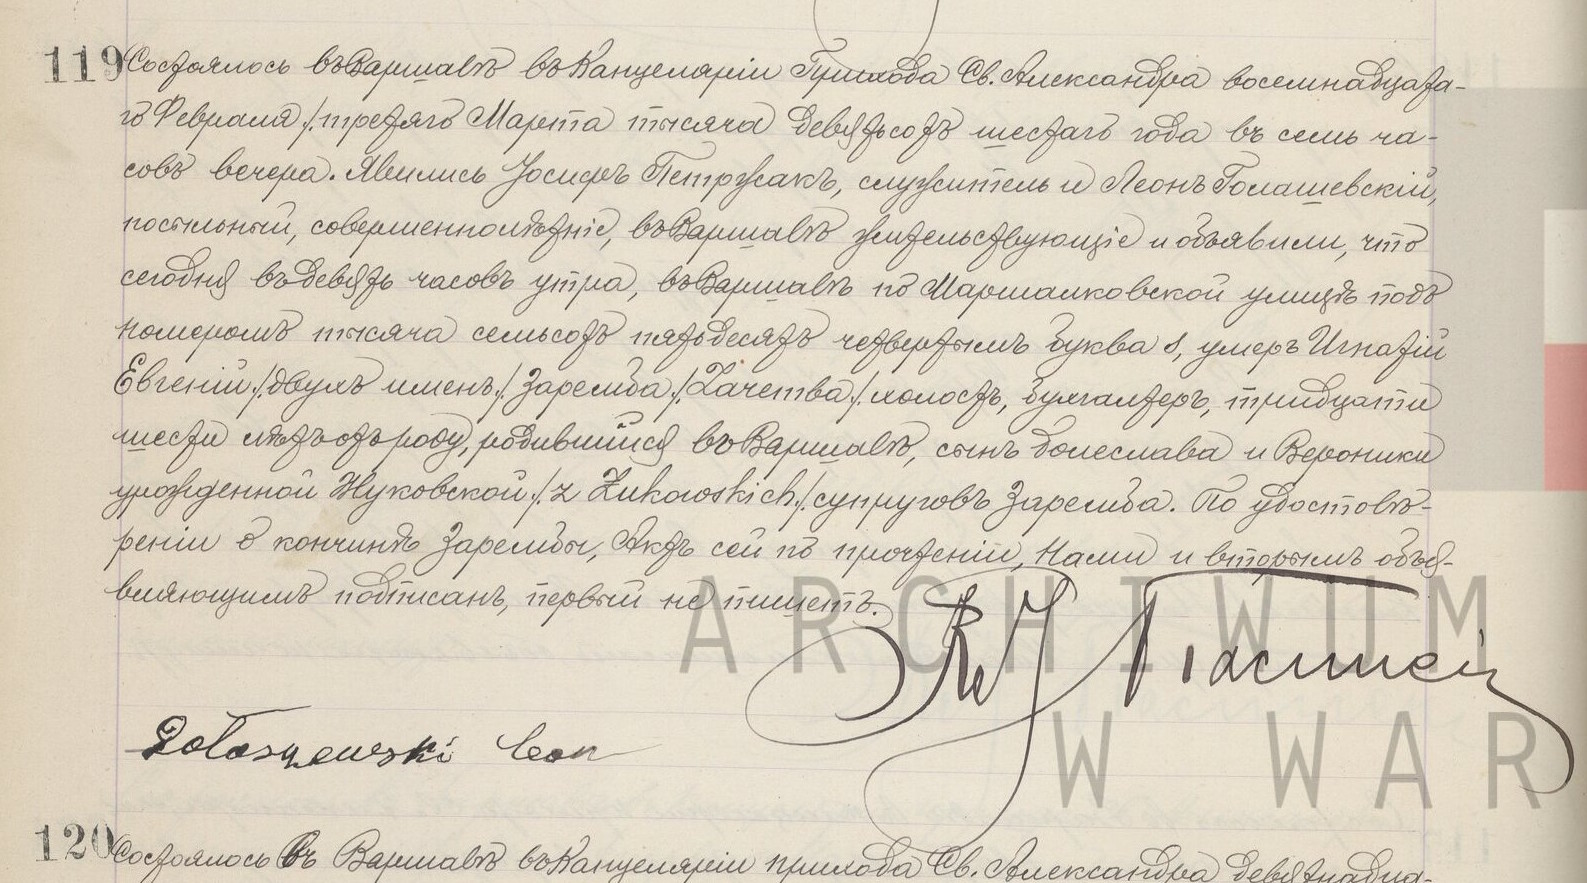 119 Состоялось въ Варшавѣ въ Канцеляріи Прихода Св. Александра восемнадцата-
го Февраля /: третяго Марта тысяча девятьсотъ шестаго года въ семь ча-
совъ вечера. Явились Іосифъ Петржакъ, служитель и Леонъ Голашевскій,
посыльный, совершеннолѣтніе, въ Варшавѣ жительствующіе и объявили, что
сегодня въ девять часовъ утра, въ Варшавѣ по Маршалковской улицѣ подъ
номеромъ тысяча семьсотъ пятьдесятъ четвертымъ буква s, умеръ Игнатій
Евгеній /: двухъ именъ :/ Заремба /: Zaremba :/ холостъ, бухгалтеръ, тридцати
шести лѣтъ отъ роду, родившійся въ Варшавѣ, сынъ Болеслава и Вероники
урожденной Жуковской /: z Żukowskich :/ супруговъ Заремба. По удостовѣ-
реніи о кончинѣ Зарембы, Актъ сей по прочтеніи, Нами и вторымъ объя-
вляющимъ подписанъ, первый не пишетъ.
Gołaszewski Leon
ARCHIWUM
W WAR
120 Состоялось въ Варшавѣ въ Канцеляріи прихода Св. Александра девятнадца-